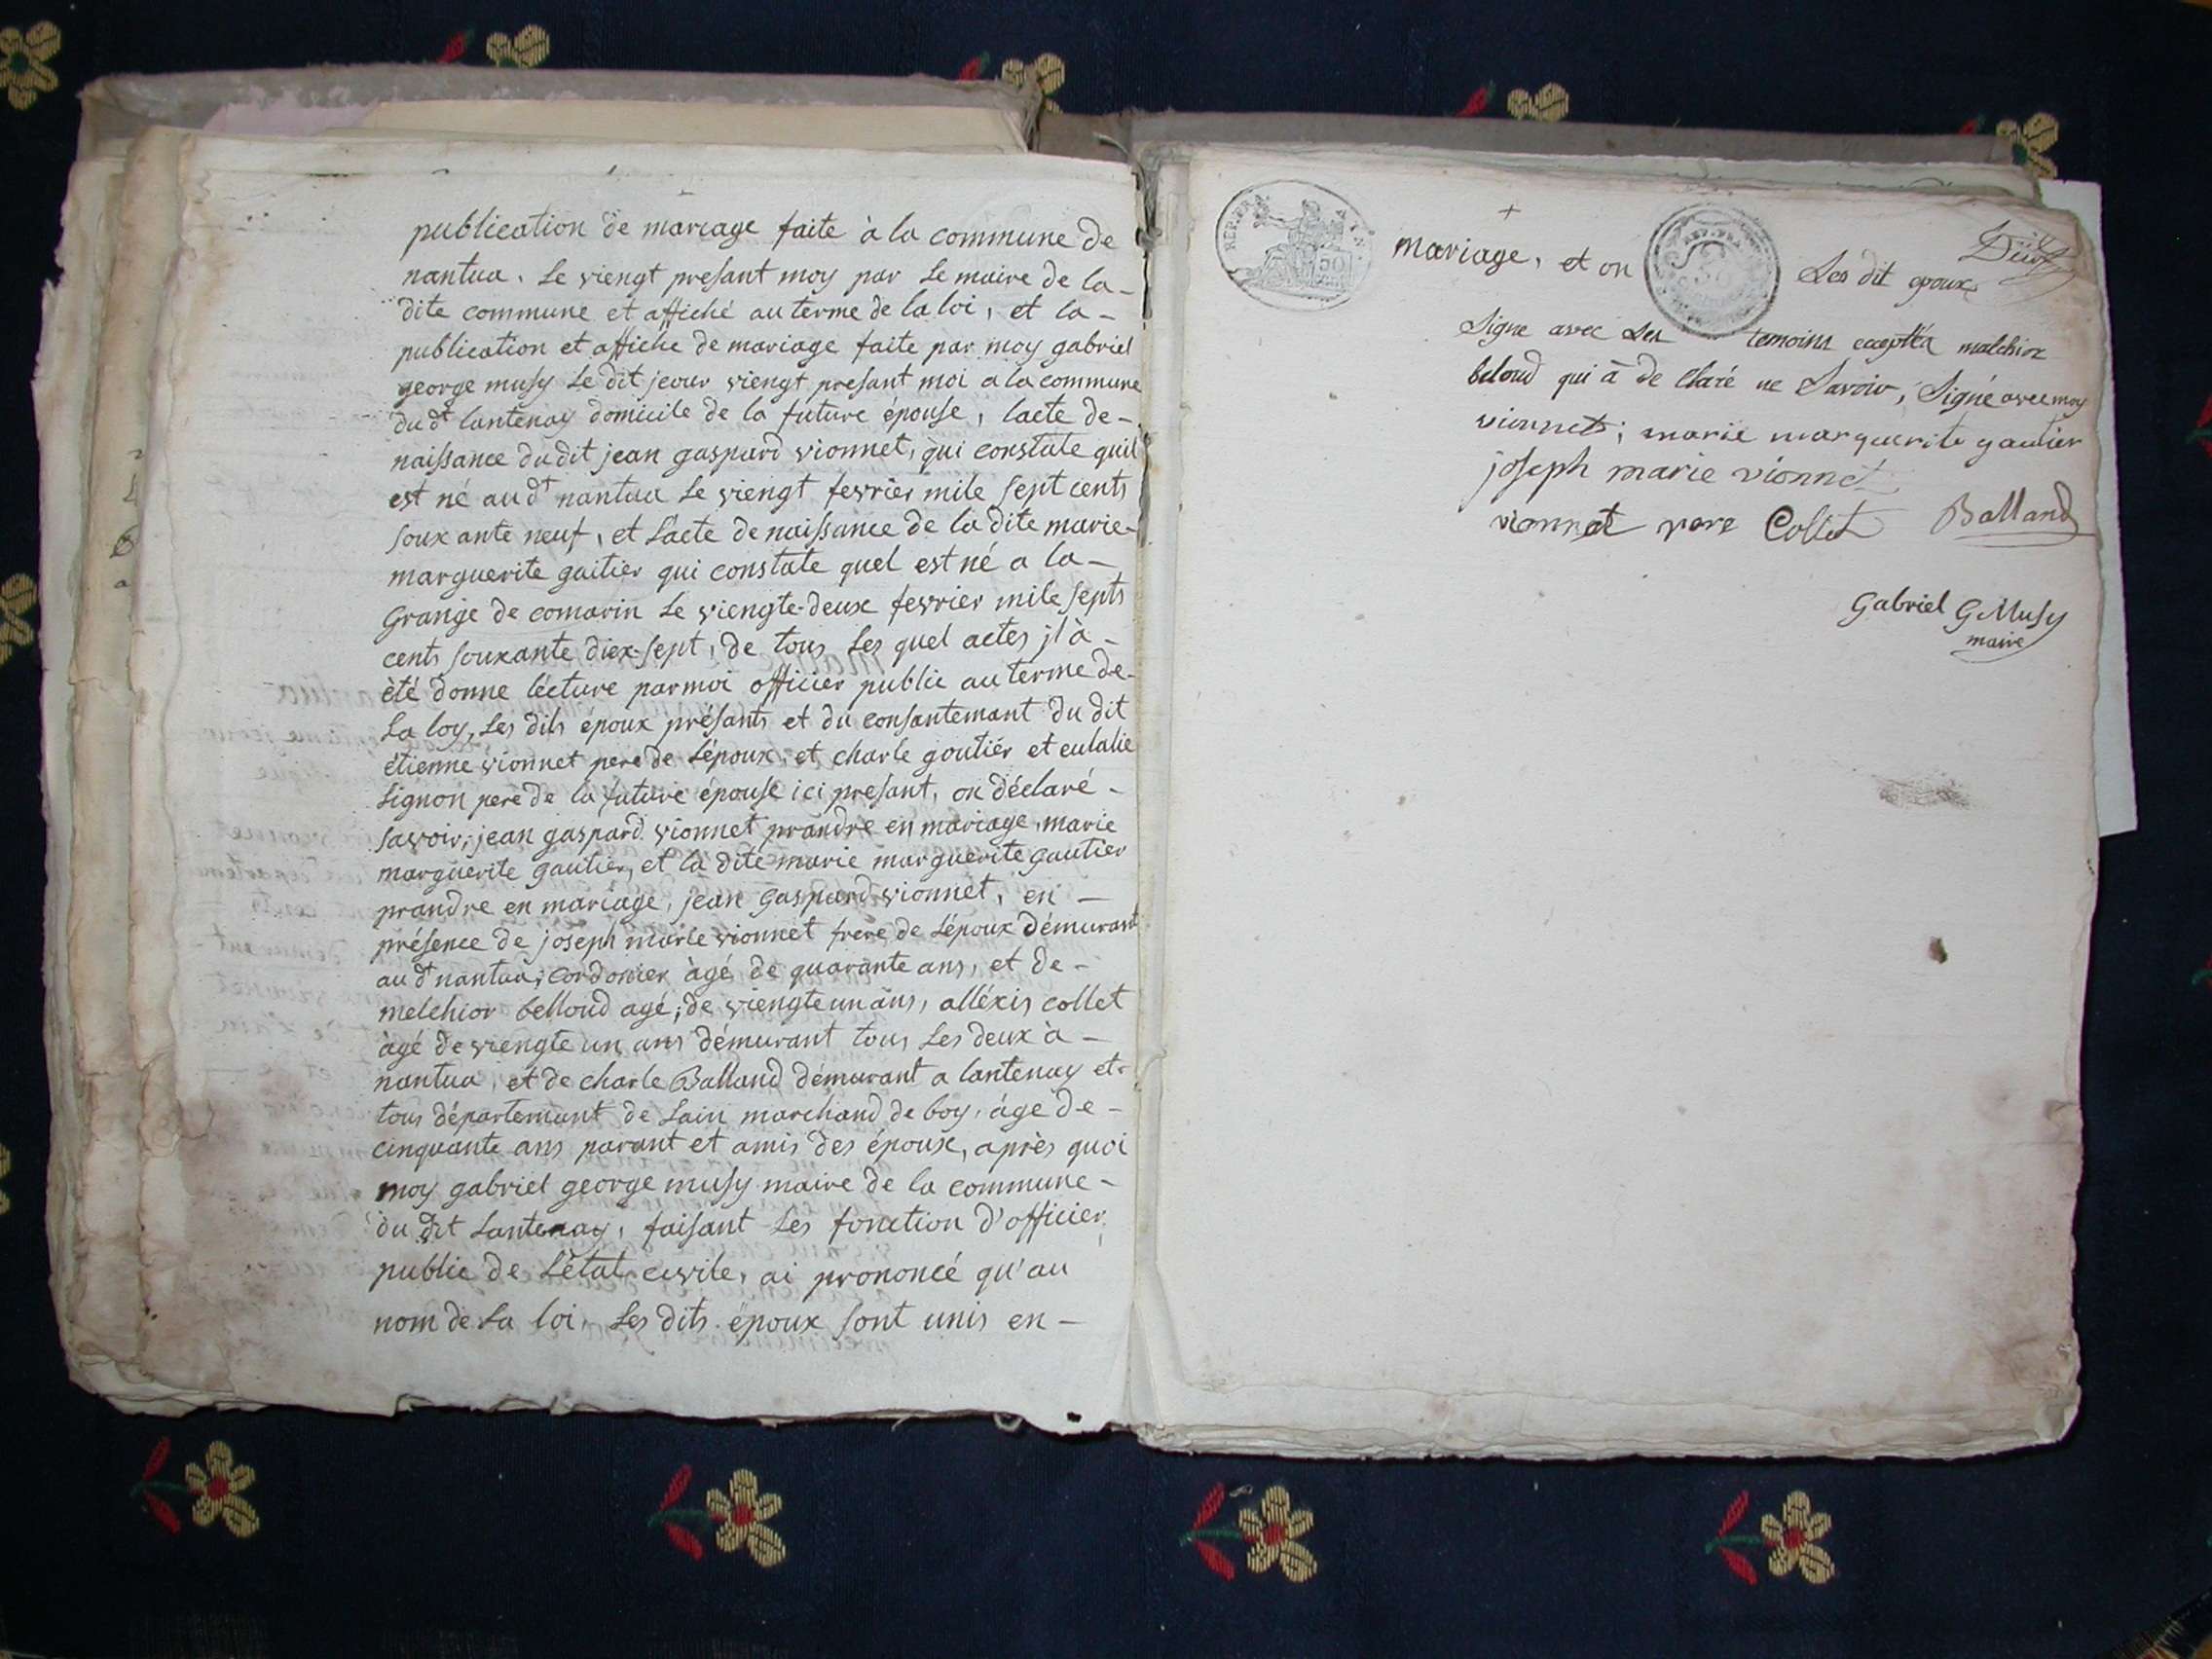 publication de mariage faite à la commune de
nantua. le viengt presant moy par le maire de la-
dite commune et affiché au terme de la loi, et la-
publication et affiche de mariage faite par moy gabriel
george musy le dit jeour viengt presant moi a la commune
du dt lantenay domicile de la future épouse, lacte de-
naissance du dit jean gaspard vionnet, qui constate quil
est né au dt nantua le viengt fevrier mile sept cents
souxante neuf, et l'acte de naissance de la dite marie-
marguerite gaitier qui constate quel est né a la-
grange de comarin le viengte-deux fevrier mile septs
cents souxante diex-sept, de tous les quel actes jl à-
été donne lécture par moi officier public au terme de-
la loy, les dits époux présants et du consantemant du dit
étienne vionnet pere de l'époux, et charle goutiér et eulalie
signon pere de la future épouse ici presant, on déclaré-
savoir; jean gaspard vionnet prandre en mariage, marie
marguerite gautier, et la dite marie marguerite gautier
prandre en mariage, jean gaspard vionnet, en-
présence de joseph marie vionnet frere de l'époux démurant
au dt nantua, cordonier àgé de quarante ans, et de-
melchior belloud agé; de viengte un ans, alléxis collet
àgé de viengte un ans démurant tous les deux à-
nantua, et de charle Balland démurant a lantenay et-
tous départemant de lain marchand de boy, áge de-
cinquante ans parant et amis des époux, après quoi
moy gabriel george musy maire de la commune-
du dit lantenay, faisant les fonction d'officier
public de l'état civile, ai prononcé qu'au
nom de la loi, les dits époux sont unis en-
REP. FRA.
50
mariage, et on les dit epoux
signe avec les temoins malchior
beloud qui à de claré ne savoir, signé avec moy
vionnet; marie marguerite gautier
joseph marie vionnet
vionnet pere Collet Balland
gabriel G Musy
maire